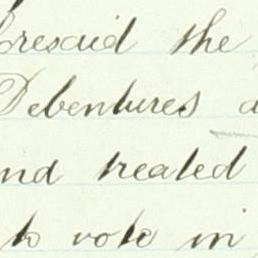 foresaid the
Debentures a
and treated
to vote in